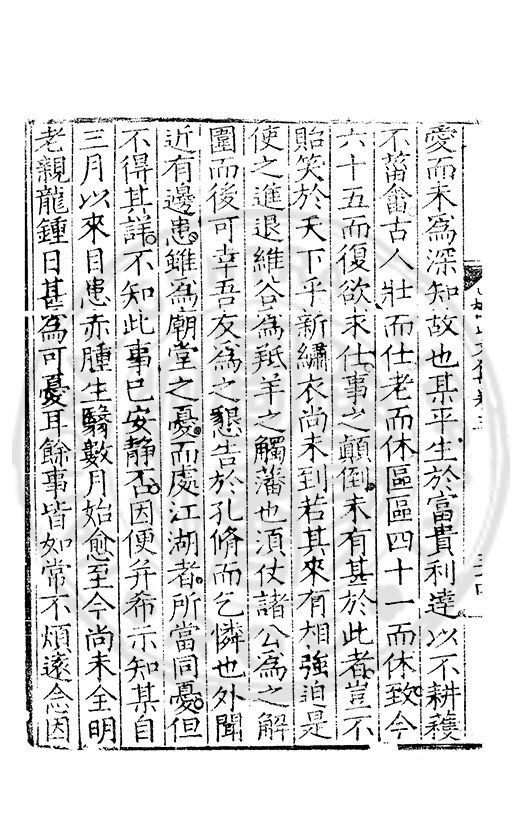 愛而未為深知故也某平生於富貴利達以不耕穫
不菑畬古人壯而仕老而休區區四十一而休致今
六十五而復欲求仕事之顛倒未有甚於此者豈不
貽笑於天下乎新繡衣尚未到若其來有相強迫是
使之進退維谷為羝羊之觸藩也須仗諸公為之解
圍而後可幸吾友為之懇告於孔脩而乞憐也外聞
近有邊患雖為廟堂之憂而處江湖者所當同憂但
不得其詳不知此事已安靜否因便并希示知某自
三月以來目患赤腫生翳數月始愈至今尚未全明
老親龍鍾日甚為可憂耳餘事皆如常不煩遠念因